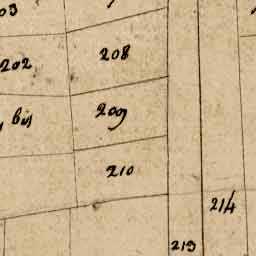 203
202
208
bis
209
210
214
213